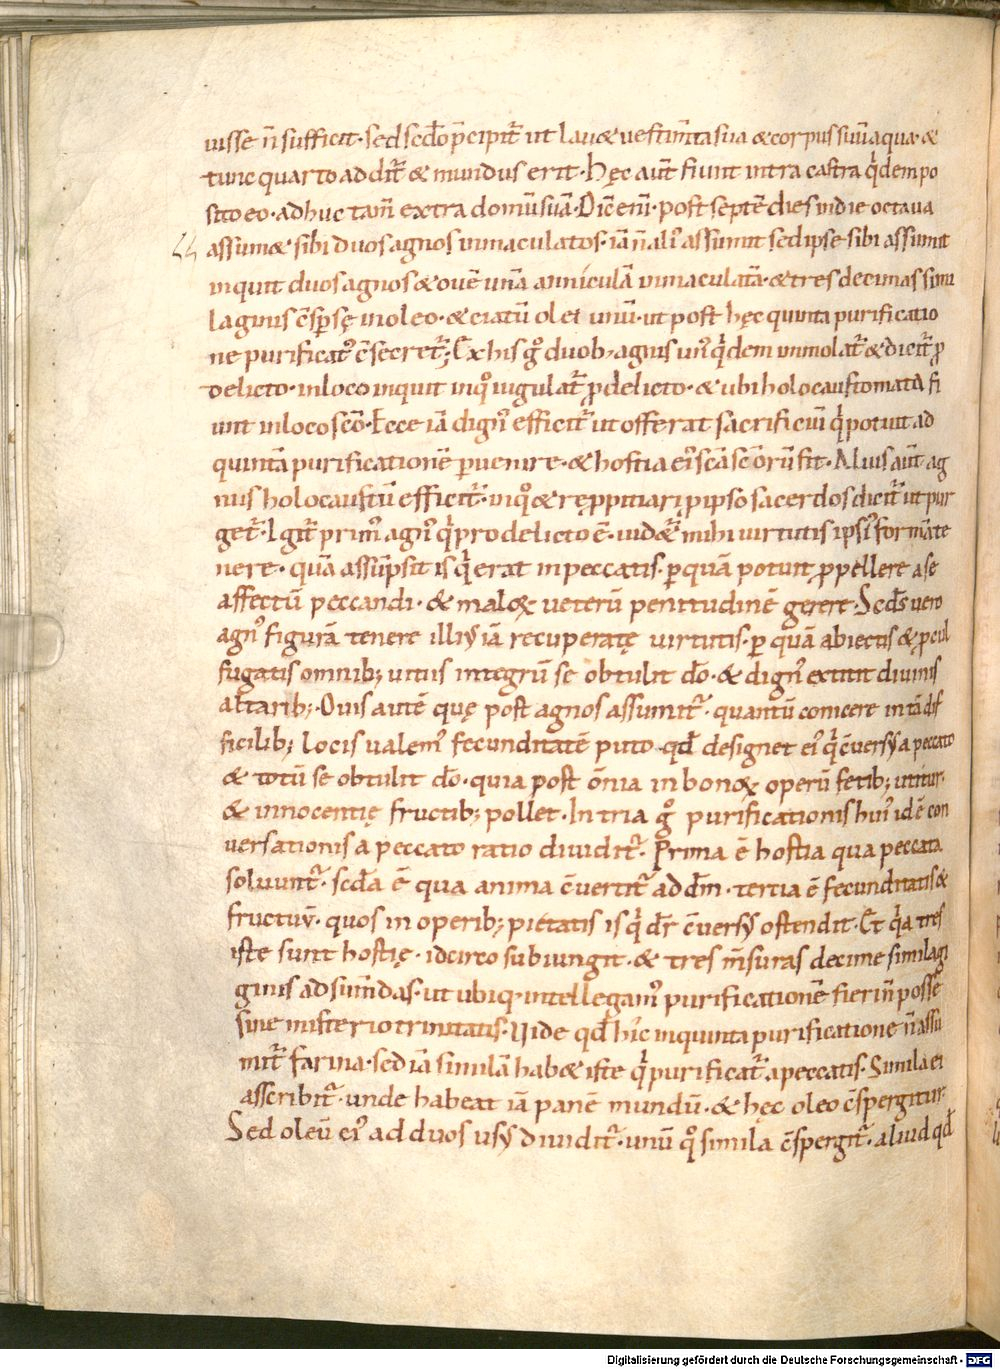 uisse n̄ sufficit · sed scdo p̄cipit̄ ut lau& uestim̄ta sua & corpus suū aqua · &
tunc quarto addit̄ & mundus erit · Hęc aut̄ fiunt intra castra q̇dem po
sito eo · adhuc tam̄ extra domū suā · Dic̄ eni᷒ · post septē dies in die octaua
assum& sibi duos agnos inmaculatos · iā n̄ ali᷒ assumit sed ipse sibi assumit
inquit duos agnos & ouē unā anniculā inmaculatā · & tres decimas simi
laginis c̄sp̄sę in oleo · & ciatū olei unū · ut post hęc quinta purificatio
ne purificat᷒ c̄secret̄ ; Ex his g̊ duob; agnis un᷒ q̇dem immolat̄ & dicit̄ ꝓ
delicto · in loco inquit in q̊ iugulat̄ ꝓ delicto · & ubi holocaustomata fi
unt in loco sc̄o · Ecce iā dign᷒ efficit̄ ut offerat sacrificiū q̇ potuit ad
quintā purificationē ꝑuenire · & hostia ei᷒ sc̄a sc̄orū fit · Alius aut̄ ag
nus holocaustū efficit̄ · in q̊ & rępptiari p ipso sacerdos dicit̄ ut pur
get̄ · Igit̄ prim᷒ agn᷒ q̇ pro delicto ē · uidet̄ mihi uirtutis ipsi᷒ formā te
nere · quā assūpsit is q̇ erat in peccatis · ꝑ quā potuit ꝓpellere a se
affectū peccandi · & maloꝝ ueterū penitudinē gerere · Scd̄s uero
agn᷒ figurā tenere illi᷒ iā recuperatę uirtutis · ꝑ quā abiectis & ꝓcul
fugatis omnib; uitiis integrū se obtulit d̄o · & dign᷒ extitit diuinis
altarib; · Ouis autē quę post agnos assumit̄ · quantū conicere in tā dif
ficilib; locis ualem᷒ fecunditatē puto qd̄ designet ei᷒ q̇ c̄uersus a peccato
& totū se obtulit d̄o · quia post ōnia in bonoꝝ operū fetib; utitur
& innocentię fructib; pollet · In tria g̊ purificationis hui᷒ id ē con
uersationis a peccato ratio diuidit̄ · Prima ē hostia qua peccata
soluunt̄ · scd̄a ē qua anima c̄uertit̄ ad d̄m · tertia ē fecunditatis &
fructuū · quos in operib; pietatis is q̇ dr̄ c̄uersus ostendit · Et q̇a tres
iste sunt hostię · idcirco subiungit · & tres m̄suras decime similagi
ginis ad sum̄das · ut ubiq· intellegam᷒ purificationē fieri n̄ posse
sine misterio trinitatis · Uide qd̄ hic in quinta purificatione n̄ assu
mit̄ farina · sed iā similā hab& iste q̇ purificat̄ a peccatis · Simila ei
asscribit̄ · unde habeat iā panē mundū · & hęc oleo c̄spergitur
Sed oleū ei᷒ ad duos usus diuidit̄ · unū q̊ simila c̄spergit̄ · aliud qd̄
Digitalisierung gefördert durch die Deutsche Forschungsgemeinschaft - DFG